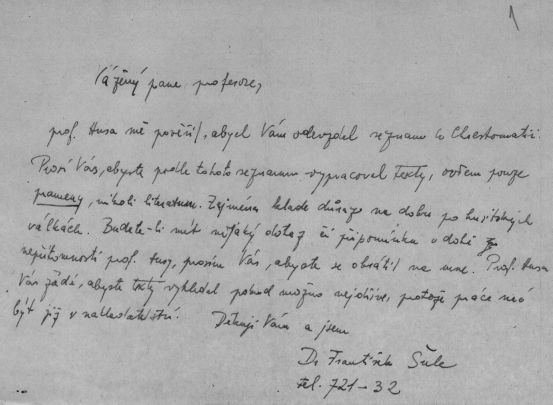 1
Vážený pane profesore,
prof. Husa mě pověřil, abych Vám odevzdal seznam ke Chrestomatii.
Prosí Vás, abyste podle tohoto seznamu vypracoval texty, ovšem pouze
prameny, nikoli literaturu. Zejména klade důraz na dobu po husitských
válkách. Budete-li mít nějaký dotaz či připomínku v době
nepřítomnosti prof. Husy, prosím Vás, abyste se obrátil na mne. Prof. Husa
Vás žádá, abyste texty vyhledal pokud možno nejdříve, protože práce má
být již v nakladatelství.
Děkuji Vám a jsem
Dr František
tel. 721-32